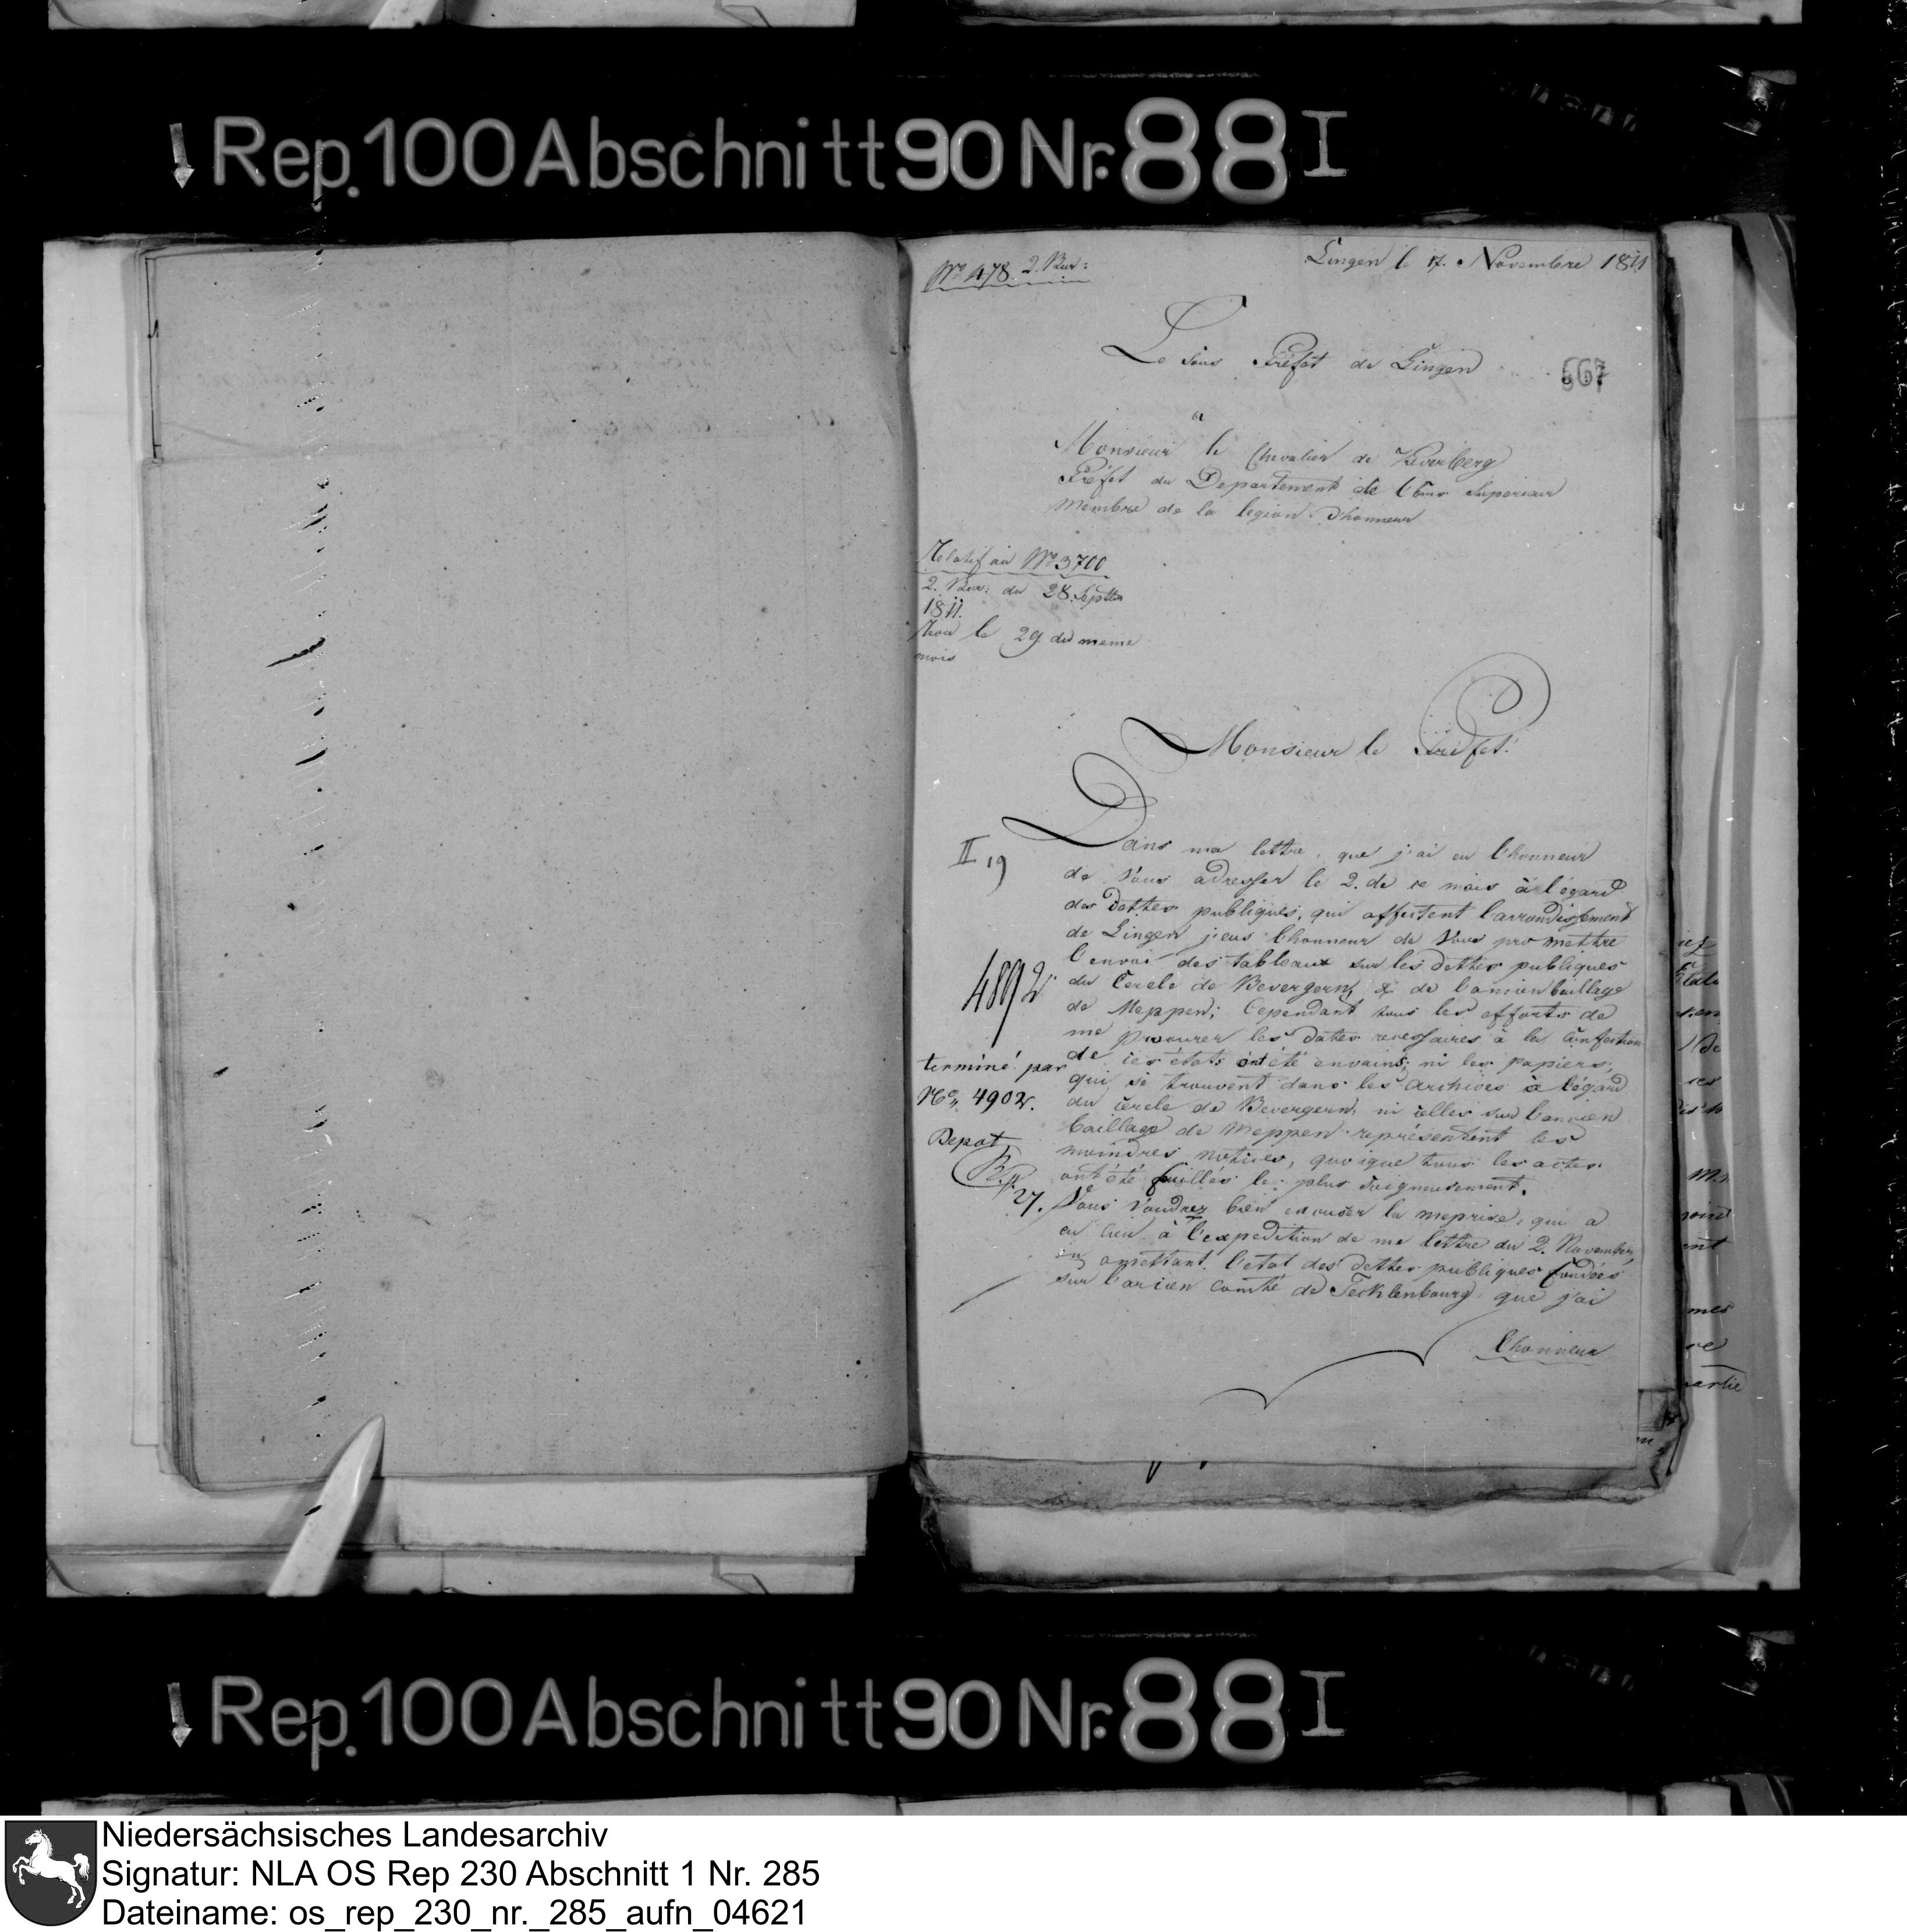 Rep. 100 Abschnitt 90 Nr. 88 I
Nº 478. 2. Bur:
Lingen le 17. Novembre 1811
Le Sous Préfet de Lingen
567
a
Monsieur le Chevalier de Keverberg
Préfet du Departement de l'Ems Superieur
Membre de la legion d'honneur
Relatif au Nº 3700
2. Bur: du 28. Septbr
1811.
le 29. du meme
mois
Monsieur le Préfet!
II 19
Dans ma lettre, que j'ai eu l'honneur
de Vous adresser le 2. de ce mois à l'égard
des dettes publiques, qui affectent l'arrondissement
de Lingen j'eus l'honneur de Vous promettre
l'envoi des tableaux sur les dettes publiques
du Cercle de Bevergern, & de l'ancien baillage
de Meppen; Cependant tous les efforts de
me procurer les dates necessaires à la Confection
de ces états ont été envains; ni les papiers,
qui se trouvent dans les archives à l'égard
du cercle de Bevergern, ni celles sur l'ancien
baillage de Meppen représentent les
moindres notices, quoique tous les actes
ont été fouillés le plus soigneusement.
Vous voudrez bien excuser la meprise, qui a
eu lieu à l'expedition de me lettre du 2. November,
en omettant l'etat des dettes publiques fondées
sur l'ancien comté de Tecklenbourg que j'ai
l'honneur
4892
terminé par
No. 4902.
Depot
27.
Rep. 100 Abschnitt 90 Nr. 88 I
Niedersächsisches Landesarchiv
Signatur: NLA OS Rep 230 Abschnitt 1 Nr. 285
Dateiname: os_rep_230_nr._285_aufn_04621